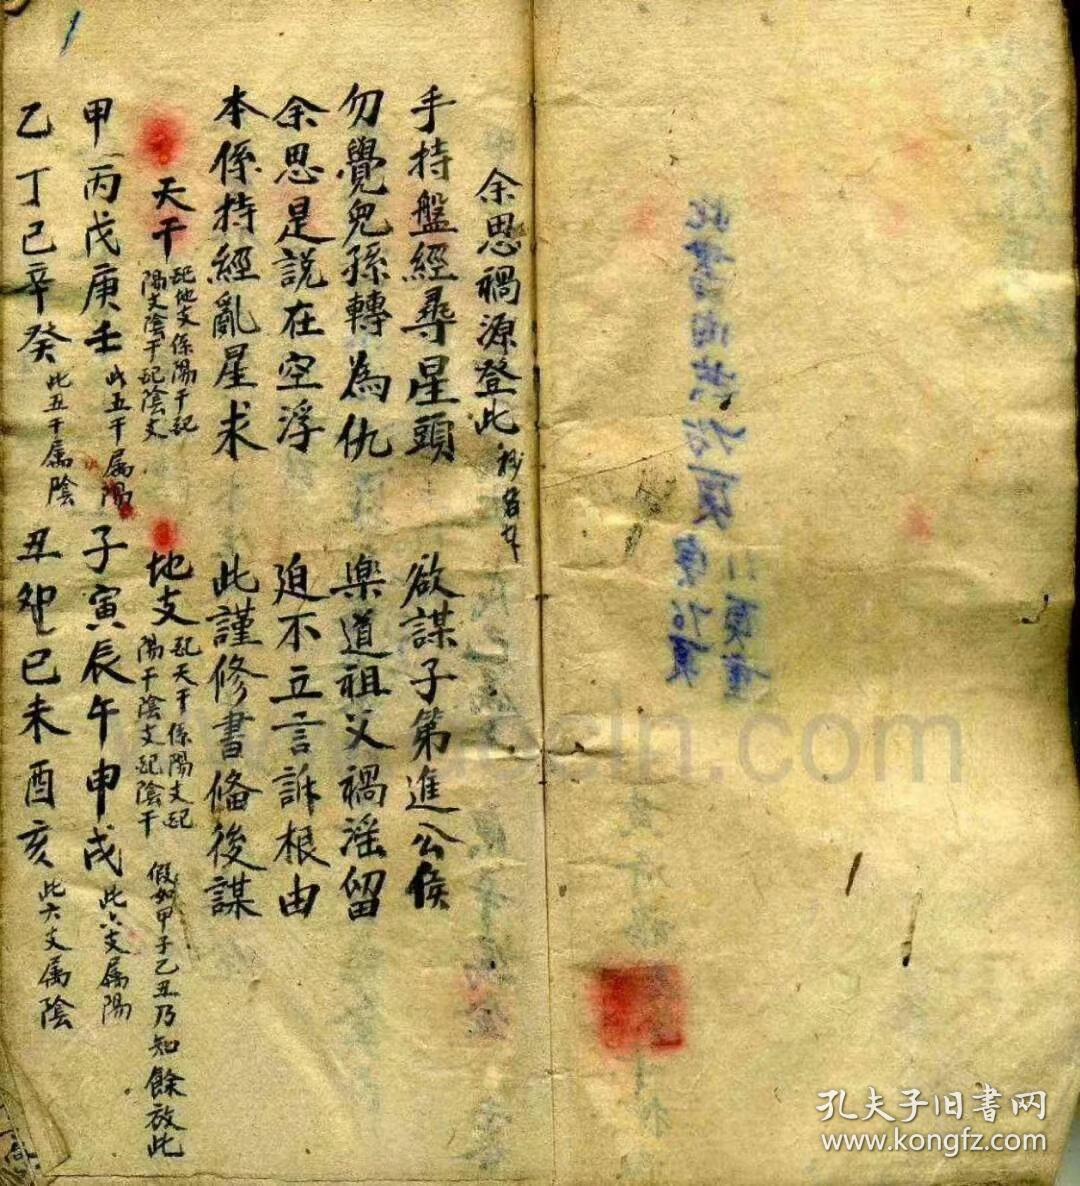 余思禍源登此
手持盤經尋星頭 欲謀子第進公侯
勿覺兒孫轉為仇 樂道祖父禍滛留
余思是說在空浮 迫不立言訴根由
本係持經亂星求 此謹修書俻後謀
天干 配地支係陽干配陽支陰干配陰支
地支 配天干係陽支配陽干陰支配陰干 假如甲子乙丑乃知餘放此
甲丙戊庚壬 此五干属陽 子寅辰午申戌 此六支属陽
乙丁己辛癸 此五干属陰 丑卯巳未酉亥 此六支属陰
孔夫子旧書网
www.kongfz.com